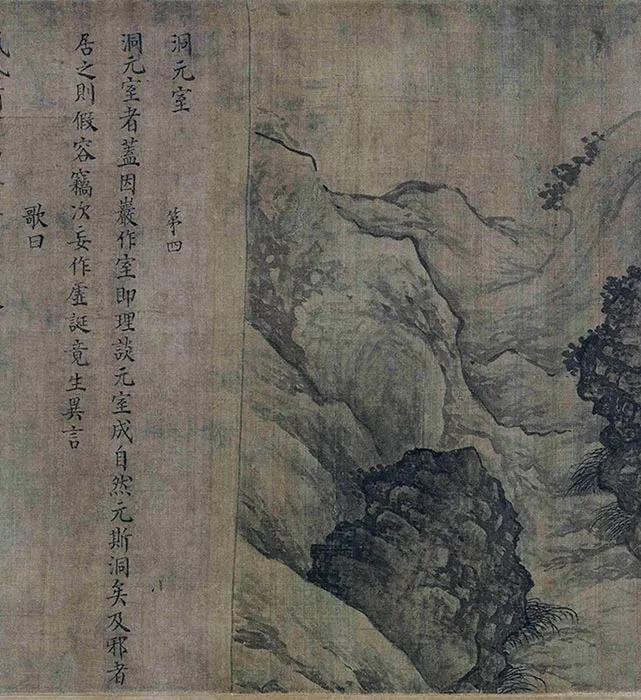 洞元室
第四
洞元室者蓋因巖作室即理談元室成自然元斯洞矣及邪者
居之則假容竊次妄作虛誕竟生異言
歌曰